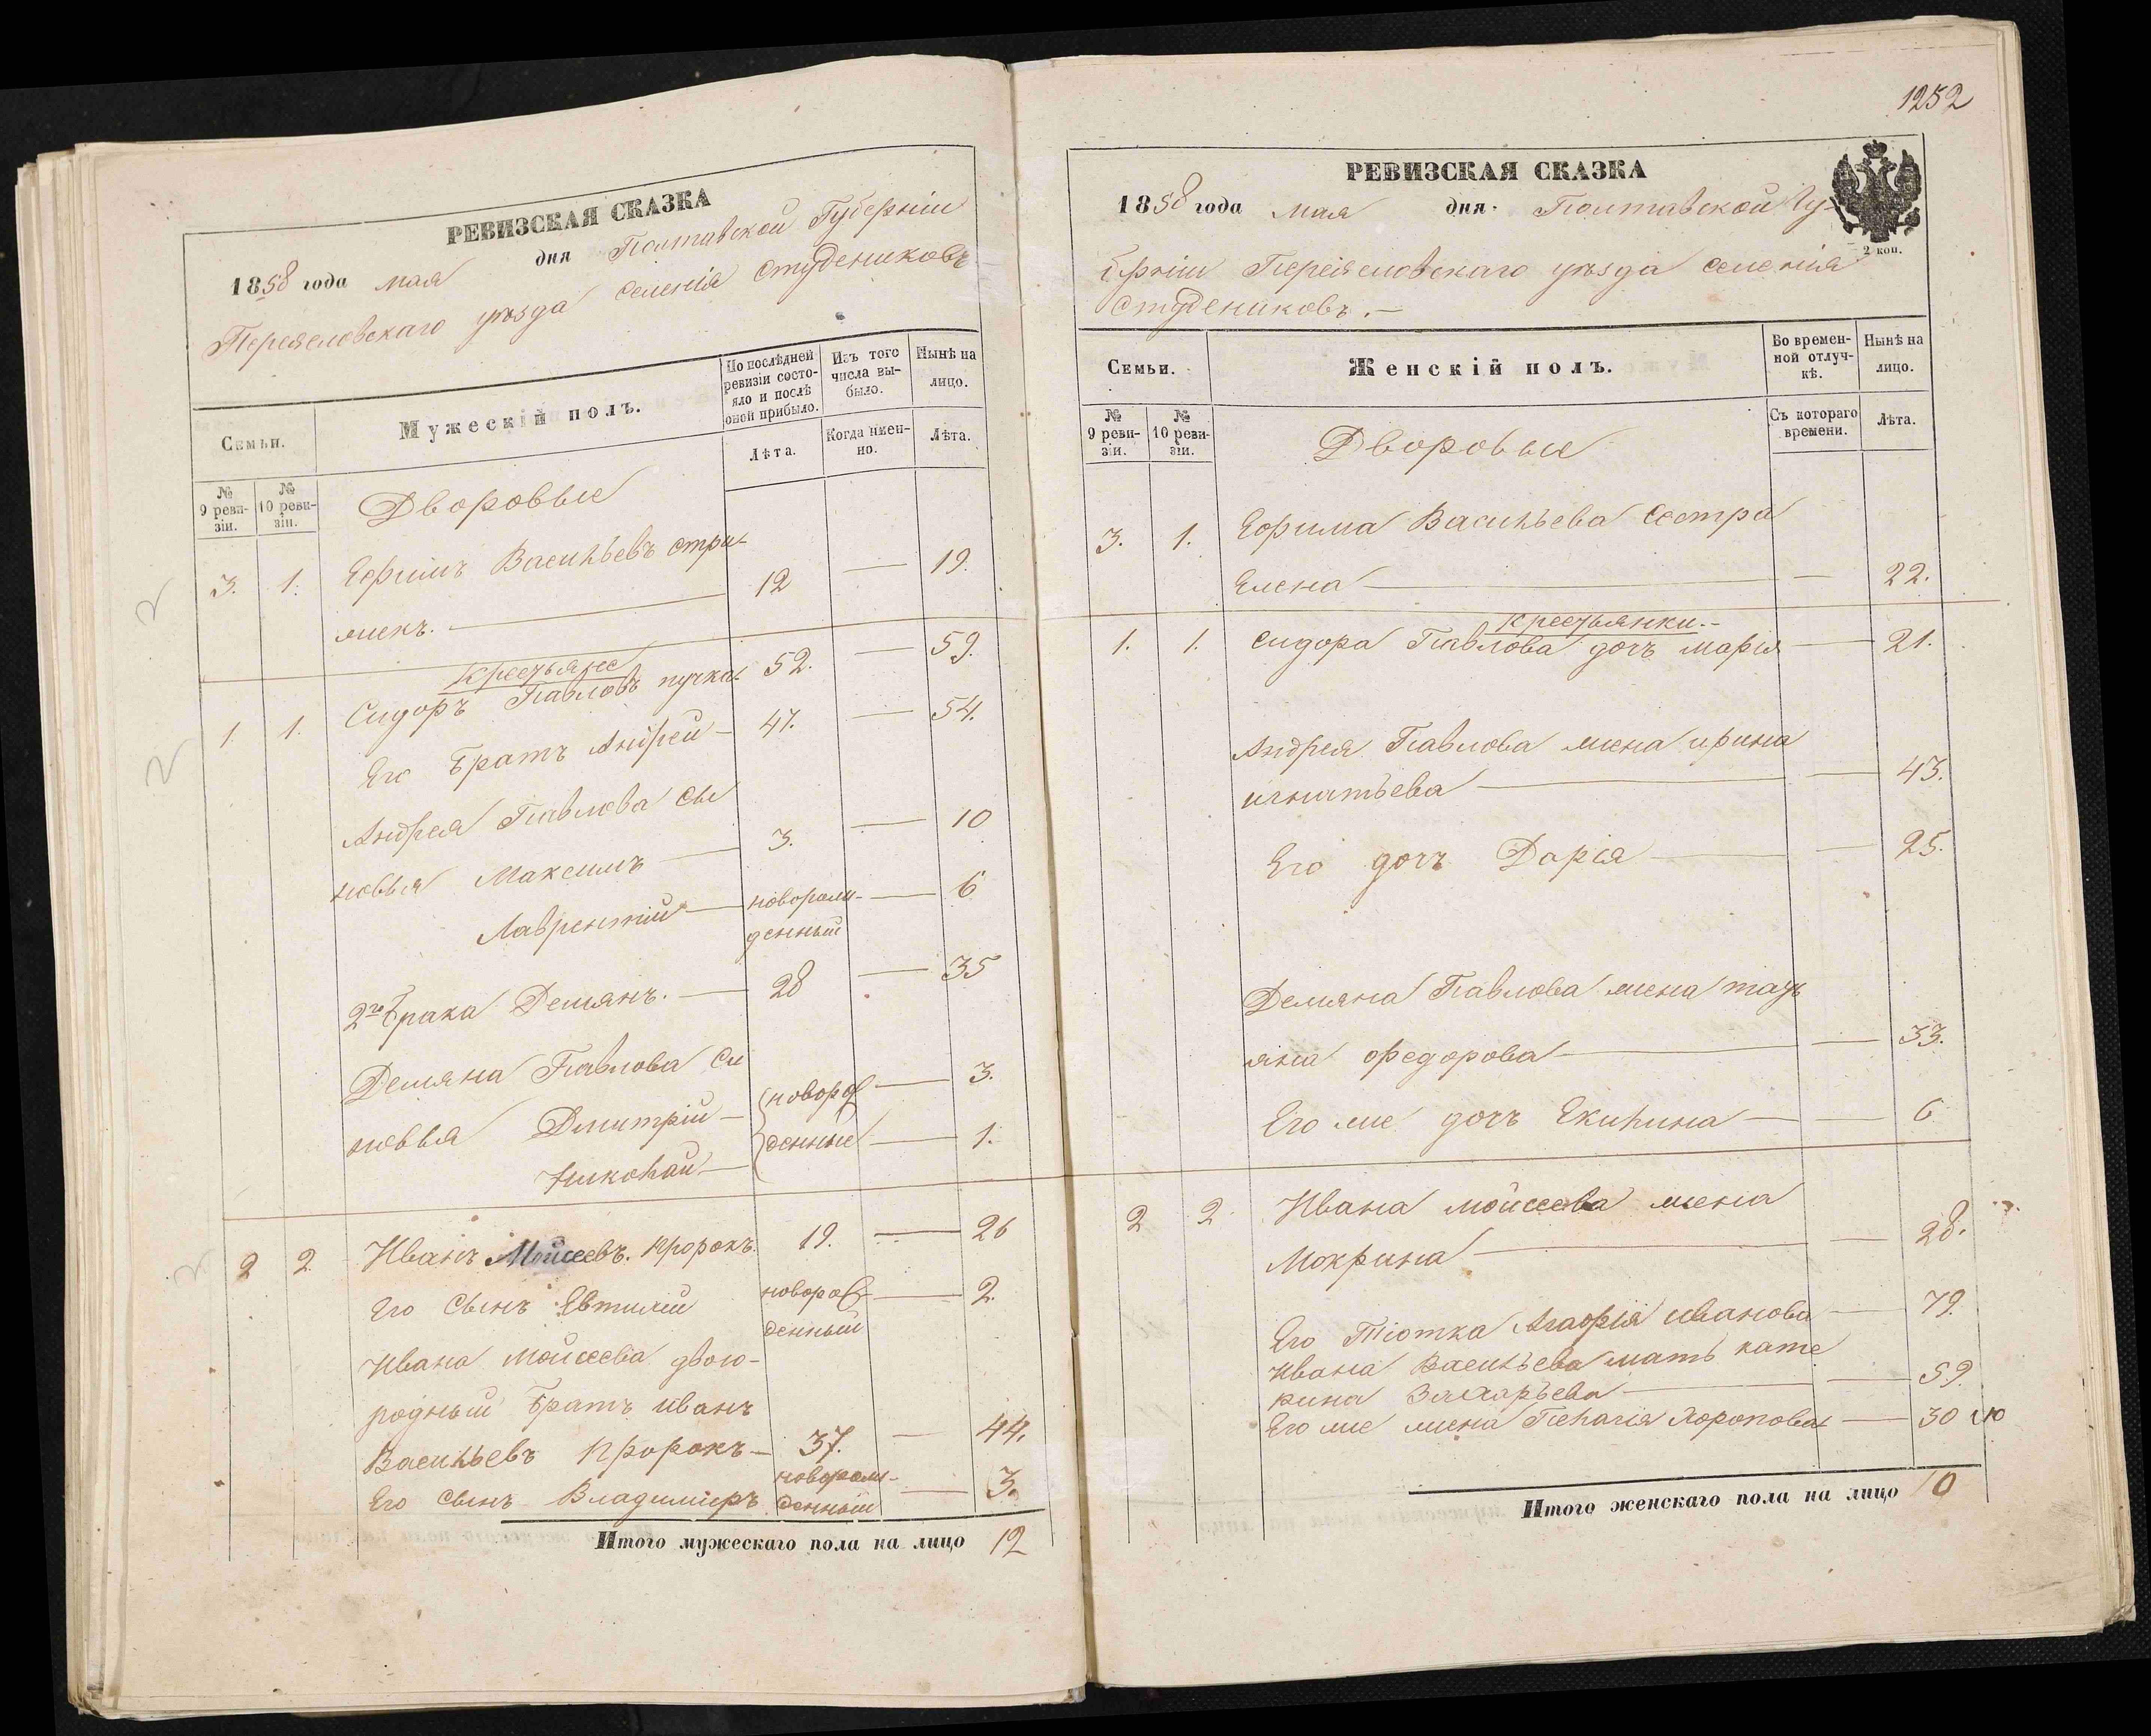 РЕВИЗСКАЯ СКАЗКА
1858 года мая дня Полтавской Губерніи
Переяславскаго уѣзда селенія Студениковъ
Семьи.
Мужескій полъ.
По послѣдней ревизіи состояло и послѣ оной прибыло.
Изъ того числа выбыло.
Нынѣ на лицо.
Лѣта.
Когда именно.
Лѣта.
№ 9 ревизіи.
№ 10 ревизіи.
Дворовые
3. 1. Ефимъ Васильевъ
12 — 19.
Крестьяне
1. 1. Сидоръ Павловъ 52. — 59.
Его Братъ Андрей — 47. — 54.
Андрея Павлова сы
новья Максимъ — 3. — 10
Лаврентій — новорож- — 6
денный
2го Брака Демянъ. — 28 — 35
Демяна Павлова сы
новья Дмитрій — новорож — 3.
Николай — денные — 1.
2 2 Иванъ Мойсеевъ. Пророкъ. 19. — 26
Его Сынъ Евтихій новорож — 2.
денный
Ивана Мойсеева двою-
родный Братъ Иванъ
Васильевъ Пророкъ — 37. — 44.
новорож-
Его Сынъ Владимиръ денный — 3.
Итого мужескаго пола на лицо 12
1252
РЕВИЗСКАЯ СКАЗКА
1858 года мая дня Полтавской Гу-
2 коп.
берніи Переяславскаго уѣзда селенія
Студениковъ. —
Семьи.
Женскій полъ.
Во временной отлучкѣ.
Нынѣ на лицо.
№ 9 ревизіи.
№ 10 ревизіи.
Съ котораго времени.
Лѣта.
Дворовые
3. 1. Ефима Васильева Сестра
Елена — — 22.
Крестьянки. —
1. 1. Сидора Павлова дочь Марія — 21.
Андрея Павлова жена Ирина
Игнатьева — — 43.
Его дочь Дарія — — 25.
Демяна Павлова жена Тать
яна Федорова — — 33.
Его же дочь Екилина — — 6
2 2 Ивана Мойсеева жена
Мокрина — — 28.
Его Тіотка Агафія Иванова — 79.
Ивана Васильева мать Кате
рина Захарьева — — 59.
Его же жена Пелагія — 30
Итого женскаго пола на лицо 10